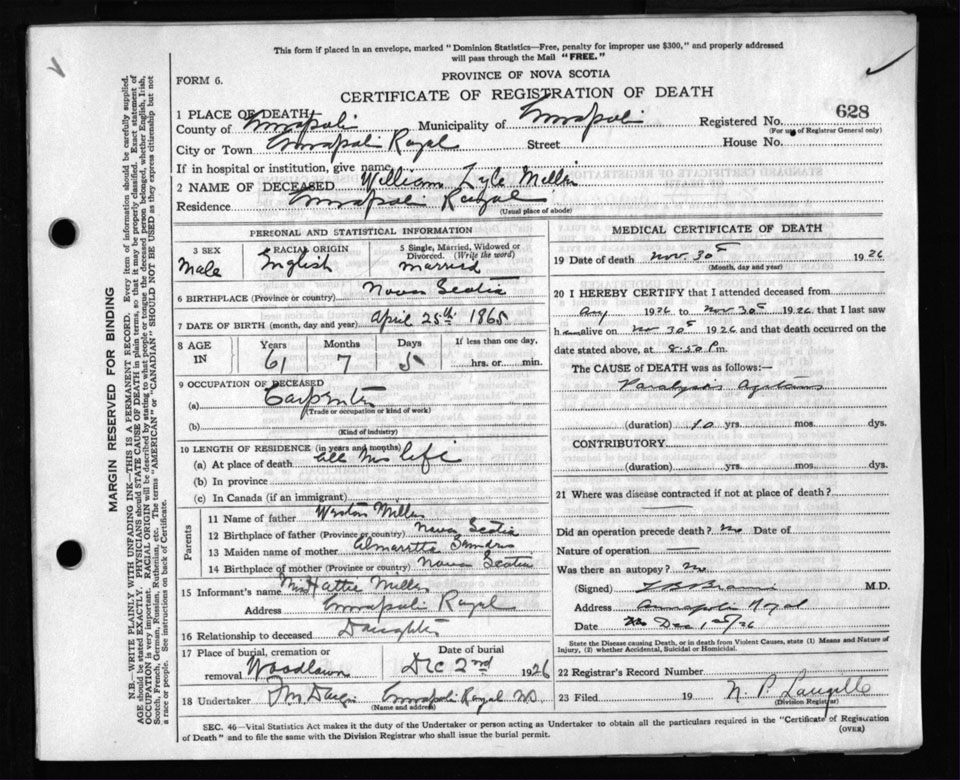 This form if placed in an envelope, marked "Dominion Statistics—Free, penalty for improper use $300," and properly addressed
will pass through the Mail "FREE."
FORM 6.
PROVINCE OF NOVA SCOTIA
CERTIFICATE OF REGISTRATION OF DEATH
1 PLACE OF DEATH
County of Annapolis Municipality of Annapolis Registered No. 628
(For use of Registrar General only)
City or Town Annapolis Royal Street House No.
If in hospital or institution, give name
2 NAME OF DECEASED William Lyle Miller
Residence Annapolis Royal
(Usual place of abode)
PERSONAL AND STATISTICAL INFORMATION
3 SEX Male
RACIAL ORIGIN English
5 Single, Married, Widowed or
Divorced. (Write the word)
married
6 BIRTHPLACE (Province or country) Nova Scotia
7 DATE OF BIRTH (month, day and year) April 25th 1865
8 AGE IN Years 61 Months 7 Days 5 If less than one day, hrs. or min.
9 OCCUPATION OF DECEASED
(a) Carpenter
(Trade or occupation or kind of work)
(b)
(Kind of industry)
10 LENGTH OF RESIDENCE (in years and months)
(a) At place of death all his life
(b) In province
(c) In Canada (if an immigrant)
Parents
11 Name of father Weston Miller
12 Birthplace of father (Province or country) Nova Scotia
13 Maiden name of mother
14 Birthplace of mother (Province or country) Nova Scotia
15 Informant's name Miss Hattie Miller
Address Annapolis Royal
16 Relationship to deceased Daughter
17 Place of burial, cremation or
removal Woodlawn
Date of burial
Dec 2nd 1926
18 Undertaker Annapolis Royal N.S.
(Name and address)
MEDICAL CERTIFICATE OF DEATH
19 Date of death Nov. 30th 1926
(Month, day and year)
20 I HEREBY CERTIFY that I attended deceased from
Aug 1926 to Nov 30th 1926, that I last saw
him alive on Nov 30th 1926 and that death occurred on the
date stated above, at 8.50 P.m.
The CAUSE of DEATH was as follows:—
Paralysis Agitans
(duration) 10 yrs. mos. dys.
CONTRIBUTORY
(duration) yrs. mos. dys.
21 Where was disease contracted if not at place of death?
Did an operation precede death? no Date of
Nature of operation —
Was there an autopsy? no
(Signed) M.D.
Address Annapolis Royal
Date Dec 1st/26
State the Disease causing Death, or in death from Violent Causes, state (1) Means and Nature of
Injury, (2) whether Accidental, Suicidal or Homicidal.
22 Registrar's Record Number
23 Filed 19
(Division Registrar)
SEC. 46—Vital Statistics Act makes it the duty of the Undertaker or person acting as Undertaker to obtain all the particulars required in the "Certificate of Registration
of Death" and to file the same with the Division Registrar who shall issue the burial permit.
(OVER)
MARGIN RESERVED FOR BINDING
N.B.—WRITE PLAINLY WITH UNFADING INK—THIS IS A PERMANENT RECORD. Every item of information should be carefully supplied.
AGE should be stated EXACTLY. PHYSICIANS should STATE CAUSE OF DEATH in plain terms, so that it may be properly classified. Exact statement of
OCCUPATION is very important. RACIAL ORIGIN will be described by stating to what people or tongue the deceased person belonged, whether English, Irish,
Scotch, French, German, Russian, Ruthenian, etc. The terms "AMERICAN" or "CANADIAN" SHOULD NOT BE USED as they express citizenship but not
a race or people. See instructions on back of Certificate.